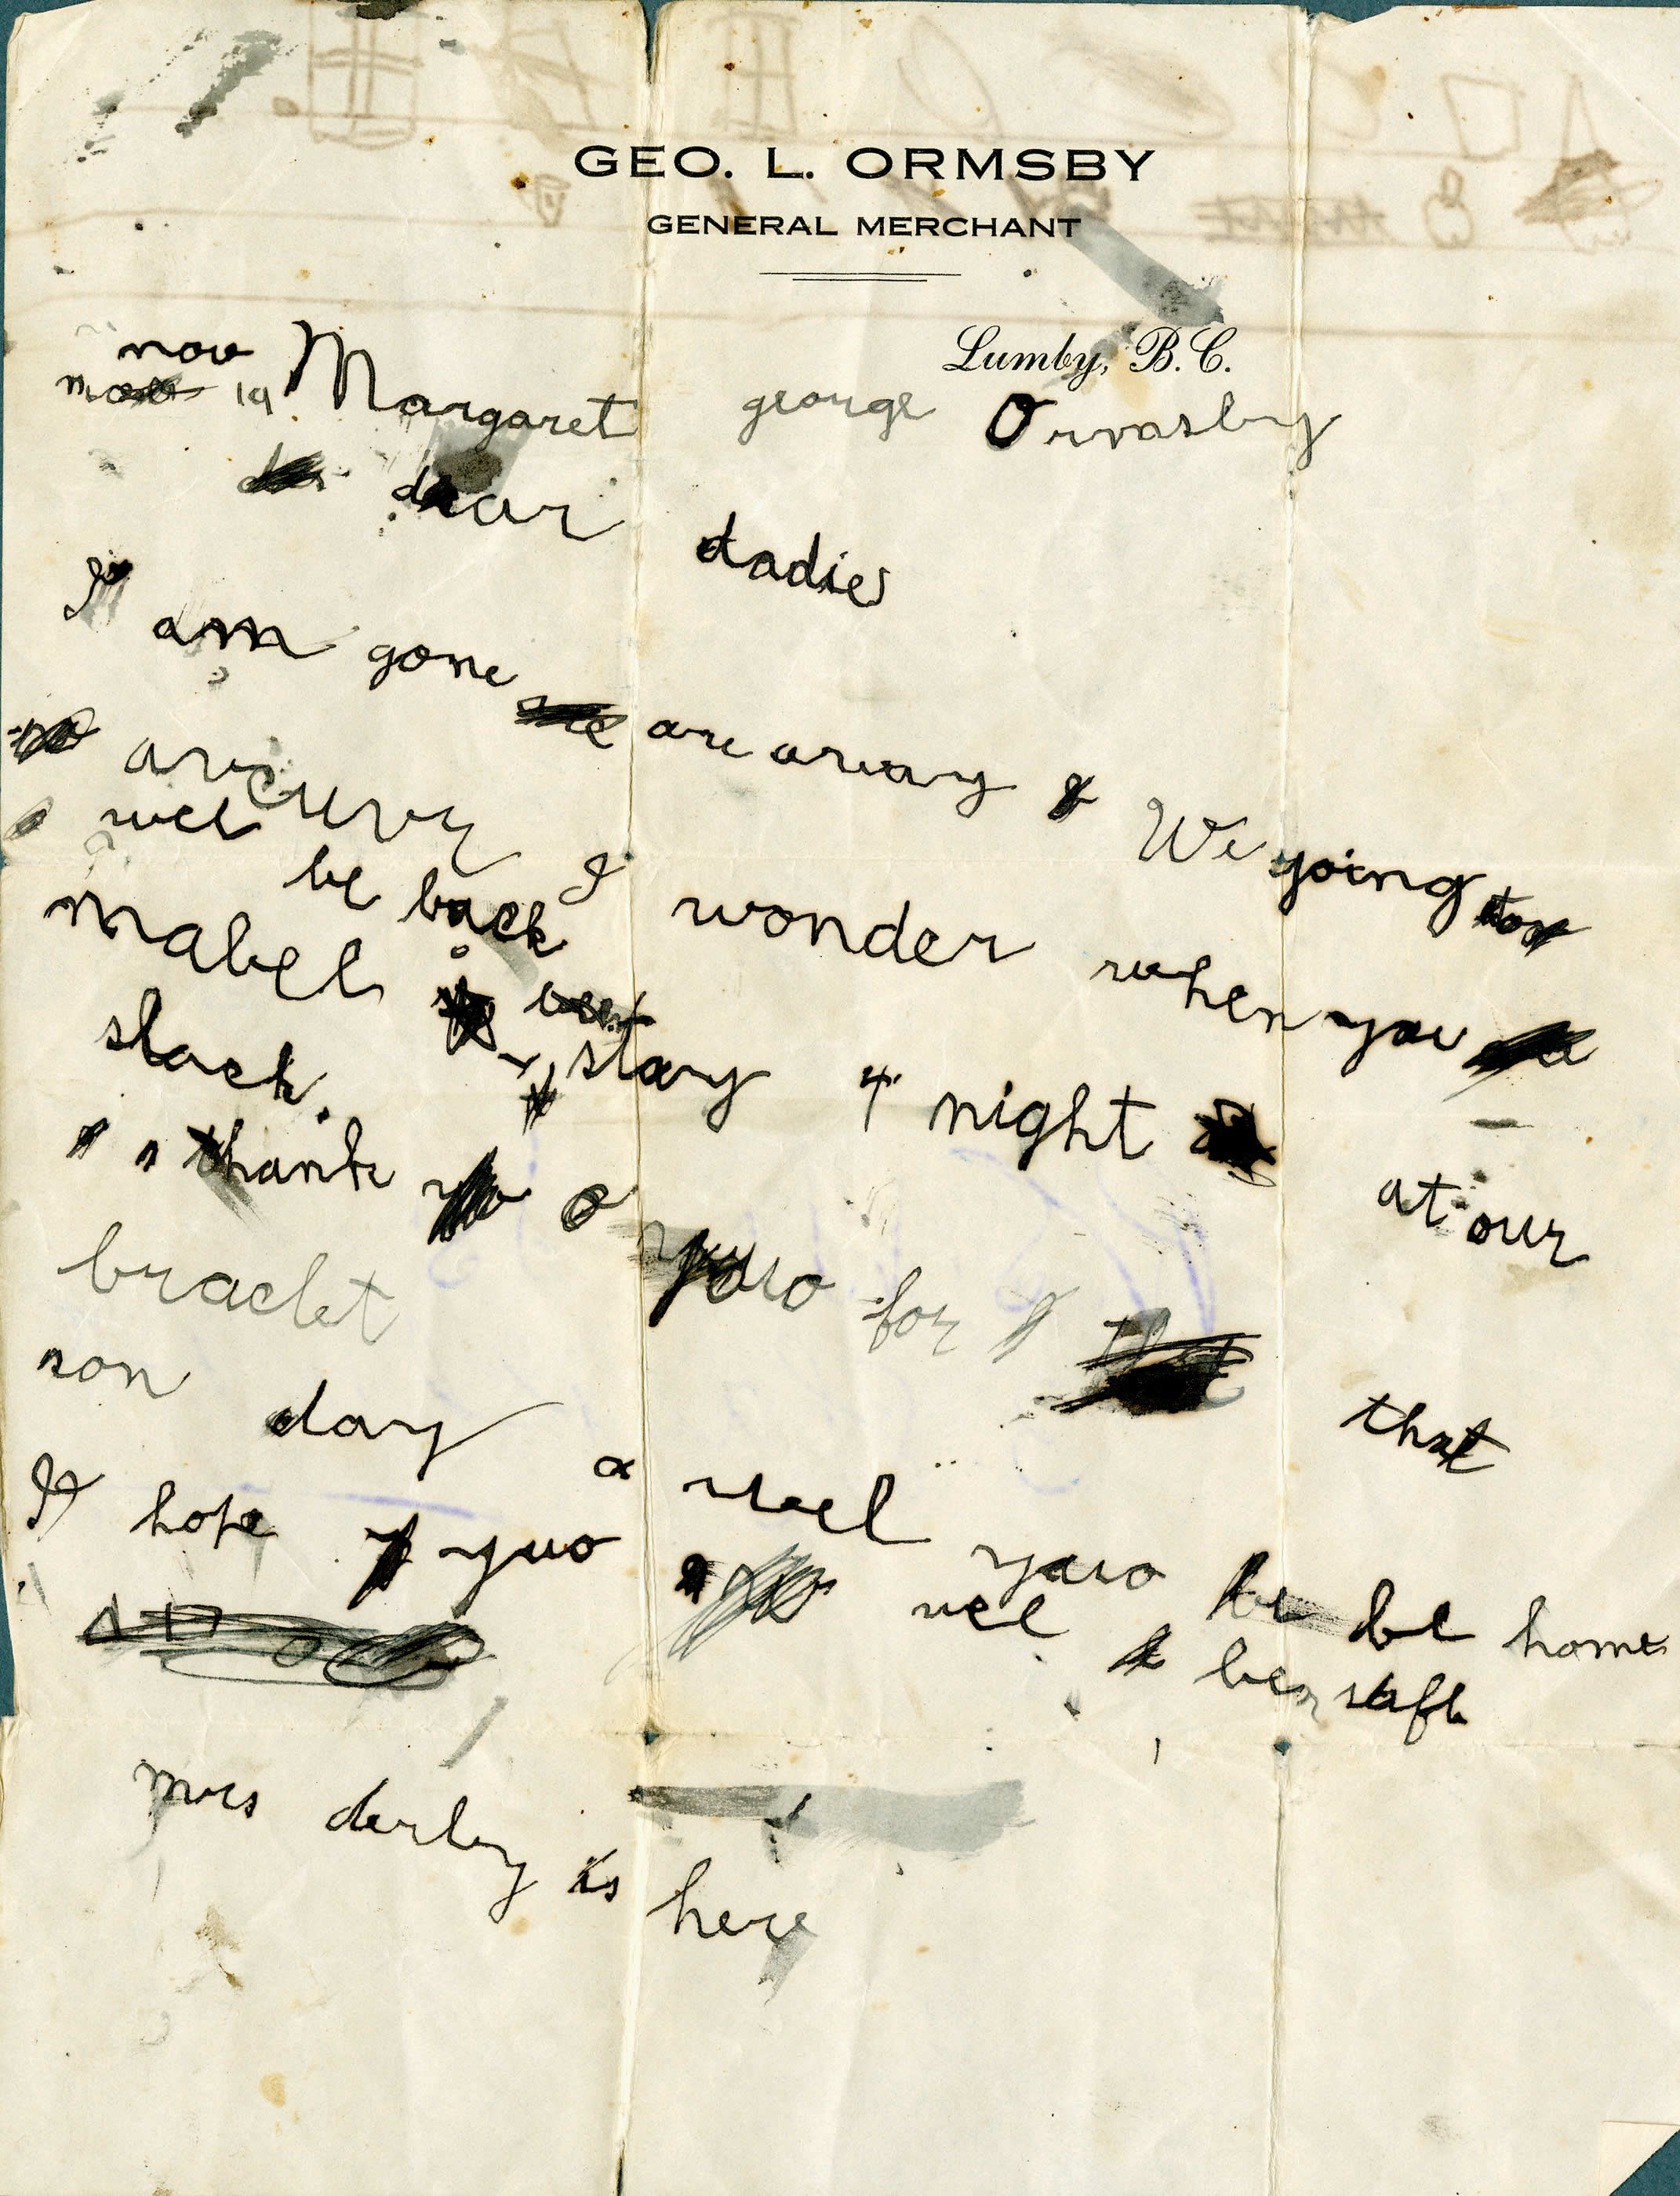 GEO. L. ORMSBY
GENERAL MERCHANT
Lumby, B.C.
nov
19 Margaret george Ormsby
dear dadie
I am gone are away We going
away I wonder when you
wel be back
mabel stay 4 night at our
slack.
thank yuo for that
braclet
son day a wel yuo be home
I hope yuo wel be safe
mrs derby is here